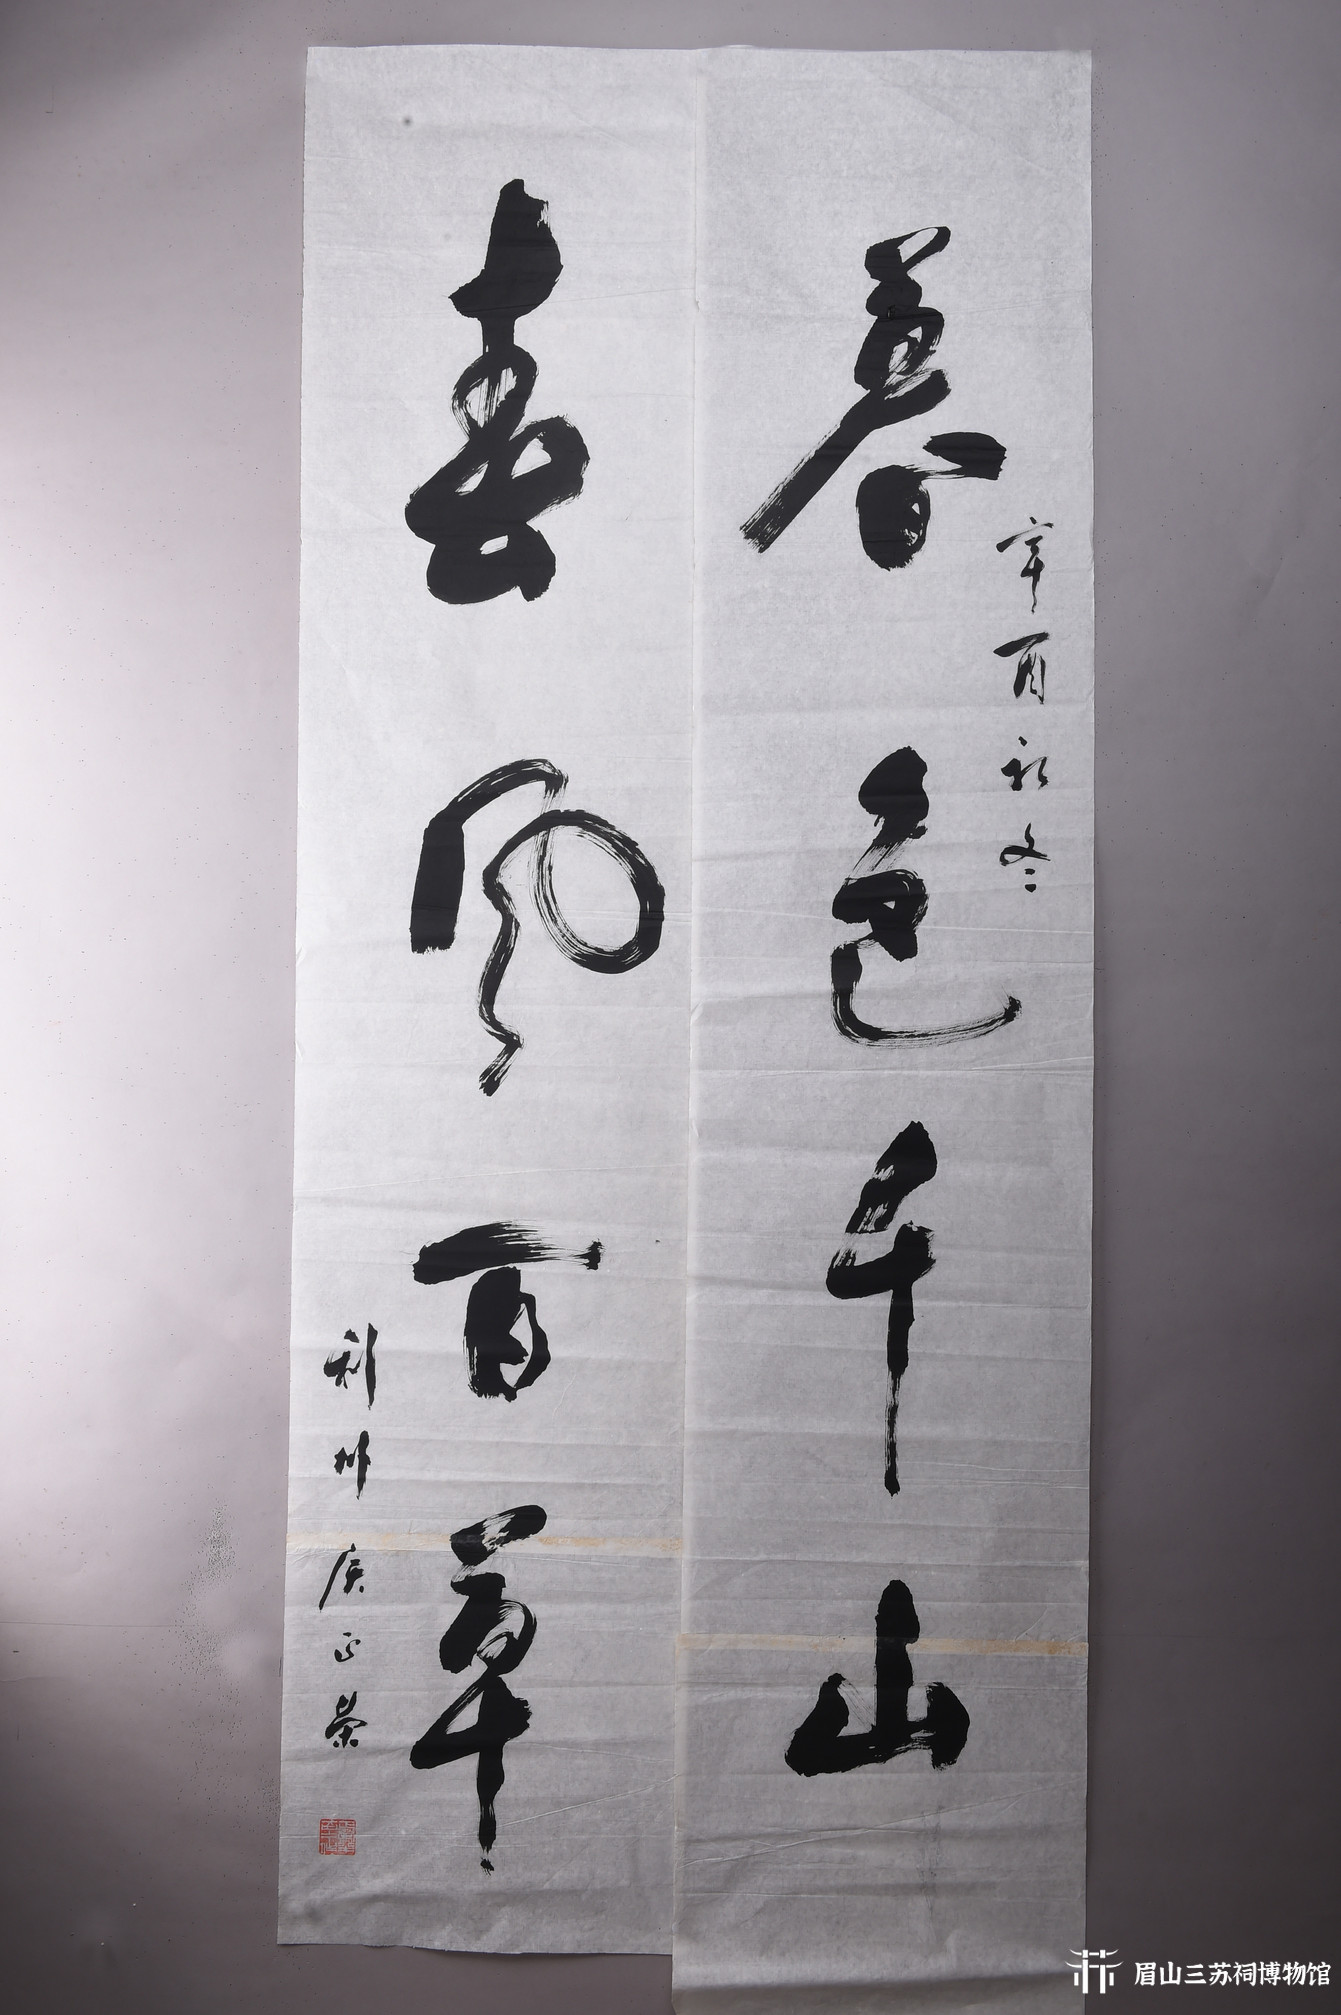 暮色千山
辛酉初冬
春风百草
利州 庚正荣
眉山三苏祠博物馆